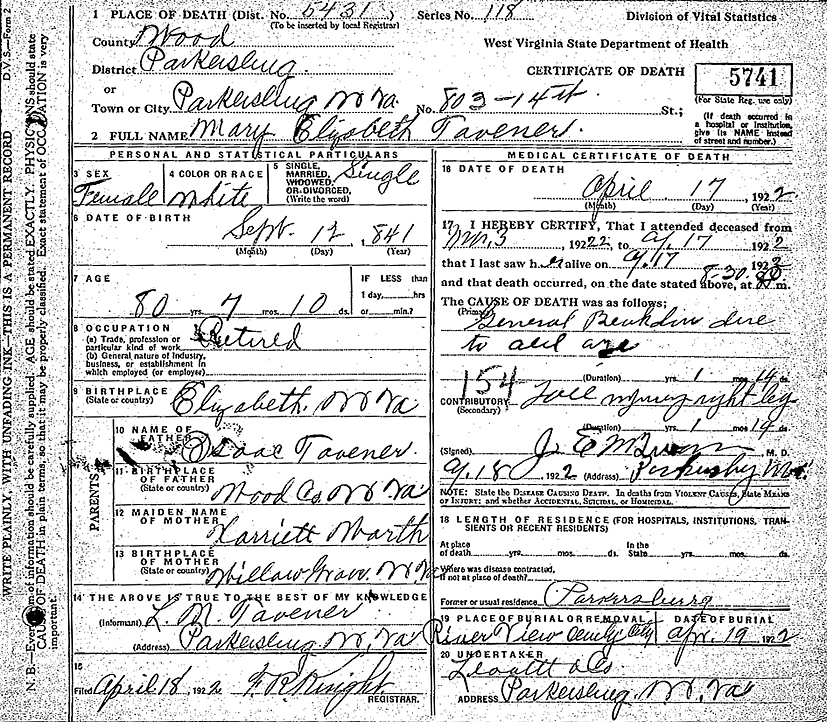 1 PLACE OF DEATH (Dist. No. 5431) Series No. 118 Division of Vital Statistics
(To be inserted by local Registrar)
County Wood West Virginia State Department of Health
District Parkersburg CERTIFICATE OF DEATH 5741
or
Town or City Parkersburg W Va. No. 803-14th St.; (For State Reg. use only)
(If death occurred in a hospital or institution, give its NAME instead of street and number.)
2 FULL NAME Mary Elizabeth Tavener.
PERSONAL AND STATISTICAL PARTICULARS
3 SEX Female
4 COLOR OR RACE White
5 SINGLE, MARRIED, WIDOWED, OR DIVORCED, (Write the word) Single
6 DATE OF BIRTH
Sept. 12, 1841
(Month) (Day) (Year)
7 AGE
80 yrs. 7 mos. 10 ds.
IF LESS than 1 day, hrs or min.?
8 OCCUPATION
(a) Trade, profession or particular kind of work Retired
(b) General nature of industry, business, or establishment in which employed (or employer)
9 BIRTHPLACE
(State or country) Elizabeth. W Va
PARENTS
10 NAME OF FATHER Isaac Tavener.
11 BIRTHPLACE OF FATHER
(State or country) Wood Co. W Va
12 MAIDEN NAME OF MOTHER Harriett Marth
13 BIRTHPLACE OF MOTHER
(State or country) Willow Grove. W Va
14 THE ABOVE IS TRUE TO THE BEST OF MY KNOWLEDGE
(Informant) L. N. Tavener.
(Address) Parkersburg W, Va
15
Filed April 18, 1922 F. R. Knight.
REGISTRAR.
MEDICAL CERTIFICATE OF DEATH
16 DATE OF DEATH
April 17, 1922
(Month) (Day) (Year)
17 I HEREBY CERTIFY, That I attended deceased from
3, 1922, to 17 1922
that I last saw h er alive on 17 1922
and that death occurred, on the date stated above, at 8-30 m.
The CAUSE OF DEATH was as follows;
(Primary)
General due
to
(Duration) yrs. 1 mos 14 ds.
154
CONTRIBUTORY injury right leg
(Secondary)
(Duration) yrs. 1 mos 14 ds.
(Signed) J. E. M. D.
18, 1922 (Address)
NOTE: State the DISEASE CAUSING DEATH. In deaths from VIOLENT CAUSES, State MEANS OR INJURY; and whether ACCIDENTAL, SUICIDAL, OR HOMICIDAL.
18 LENGTH OF RESIDENCE (FOR HOSPITALS, INSTITUTIONS, TRANSIENTS OR RECENT RESIDENTS)
At place of death yrs. mos. ds. In the State yrs. mos. ds.
Where was disease contracted, if not at place of death?
Former or usual residence Parkersburg
19 PLACE OF BURIAL OR REMOVAL DATE OF BURIAL
River View City Apr. 19 1922
20 UNDERTAKER
Leavitt & Co
ADDRESS Parkersburg. W, Va
WRITE PLAINLY, WITH UNFADING INK—THIS IS A PERMANENT RECORD D.V.S.—Form 2
N. B.—Every item of information should be carefully supplied. AGE should be stated EXACTLY. PHYSICIANS should state
CAUSE OF DEATH in plain terms, so that it may be properly classified. Exact statement of OCCUPATION is very
important.